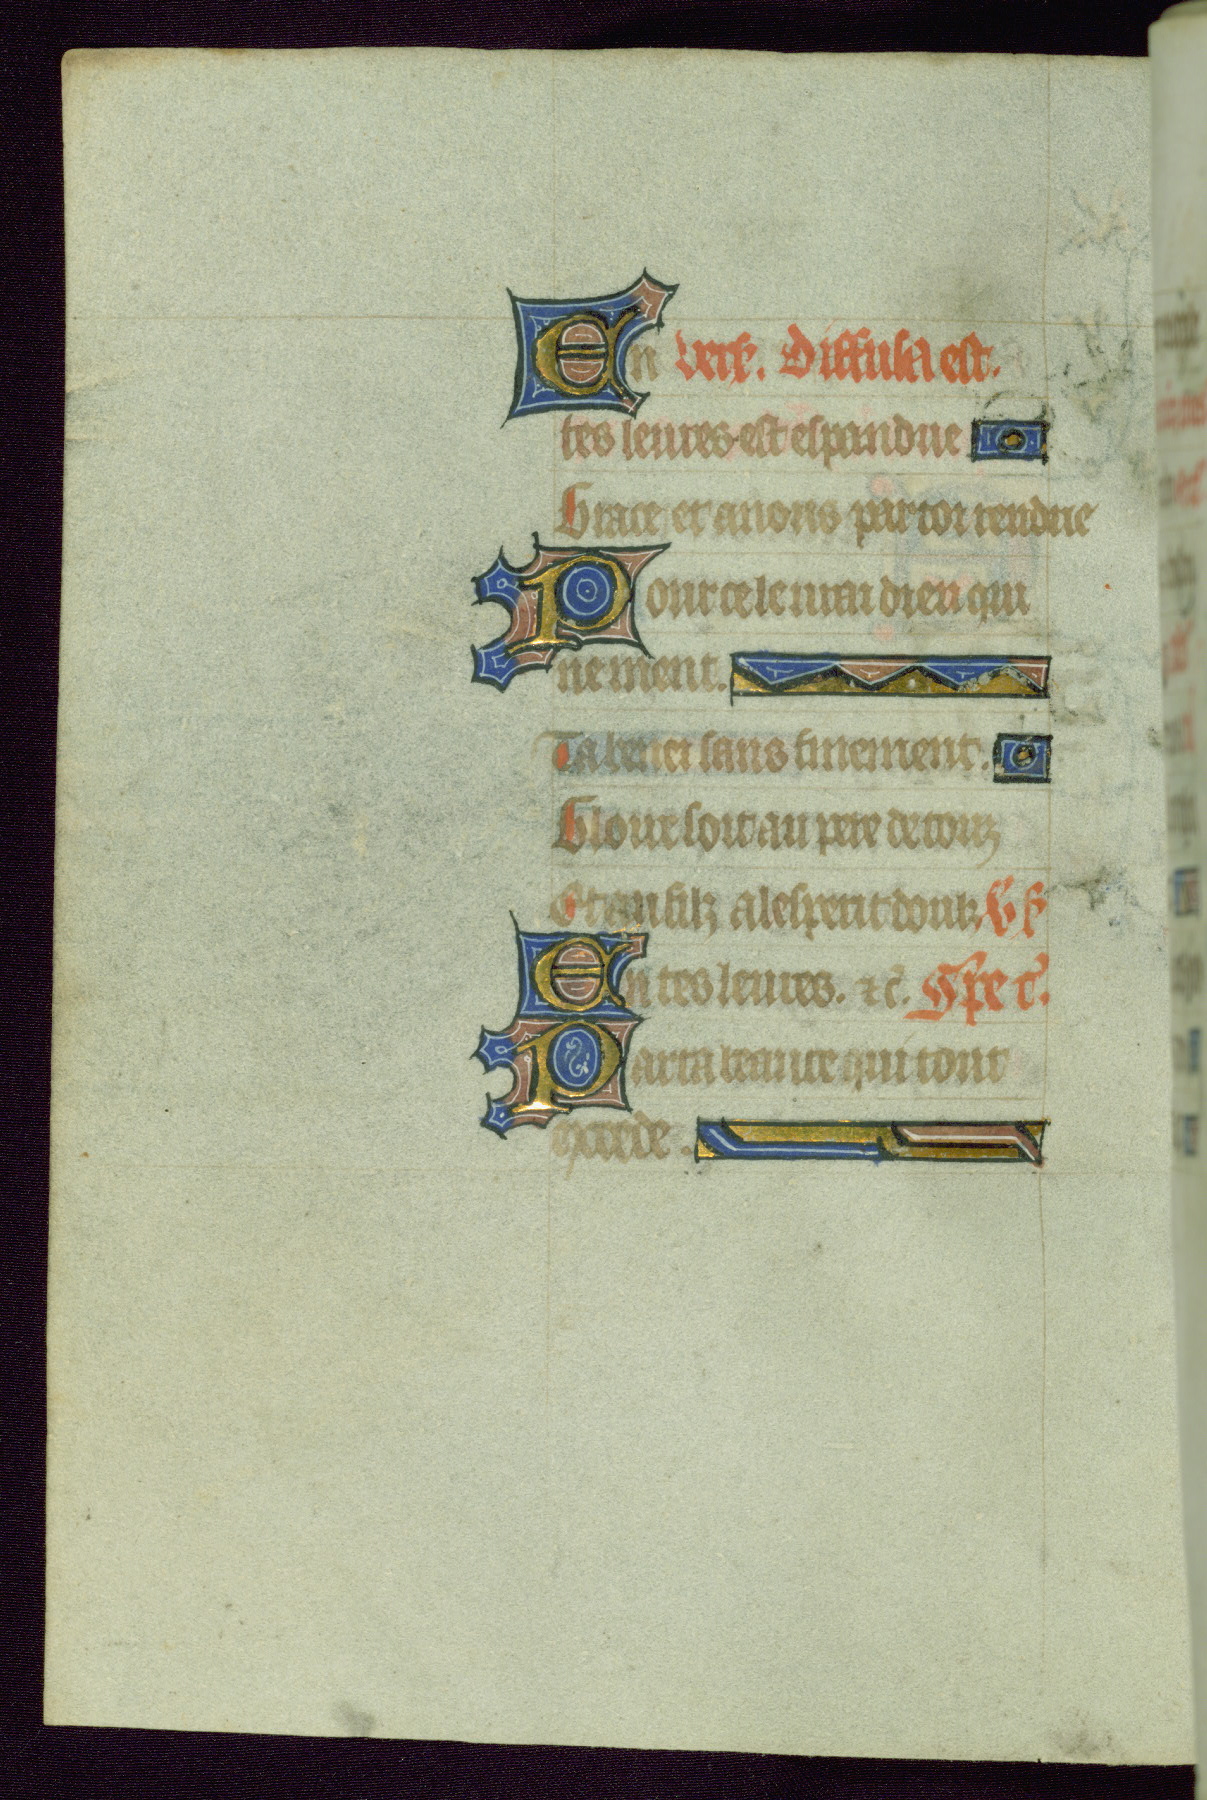 En Vers. Diffusa est.
tes leures est espandue
Grace et auons par toi rendue
Pour ce le urai dieu qui
ne ment.
Ta benei sans finement.
Gloire soit au pere de touz
Et au filz a lesperit douls
En tes leures. ⁊c̃.
Par ta biaute qui tout
excede.